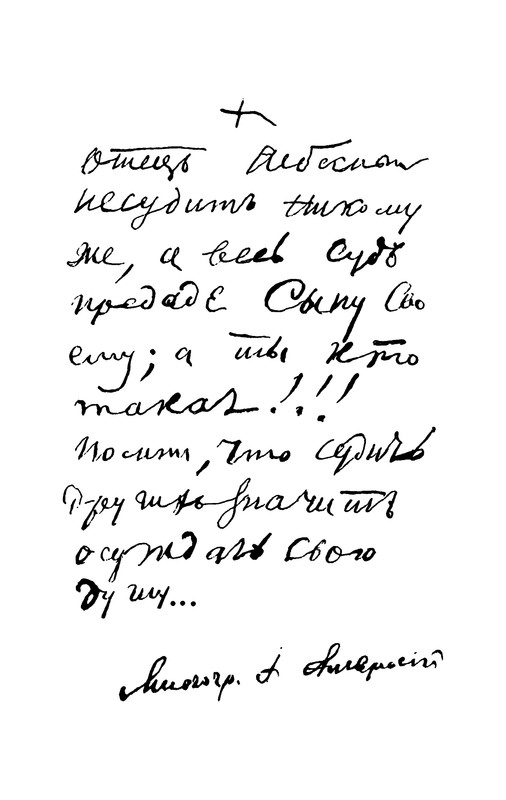 Отецъ Небесный
несудитъ никому
же, а весь судъ
предаде Сыну Сво
ему; а ты кто
такая!!!
Помни, что судить
другихъ значитъ
осуждать свою
душу...
Многогр. І. Амвросій